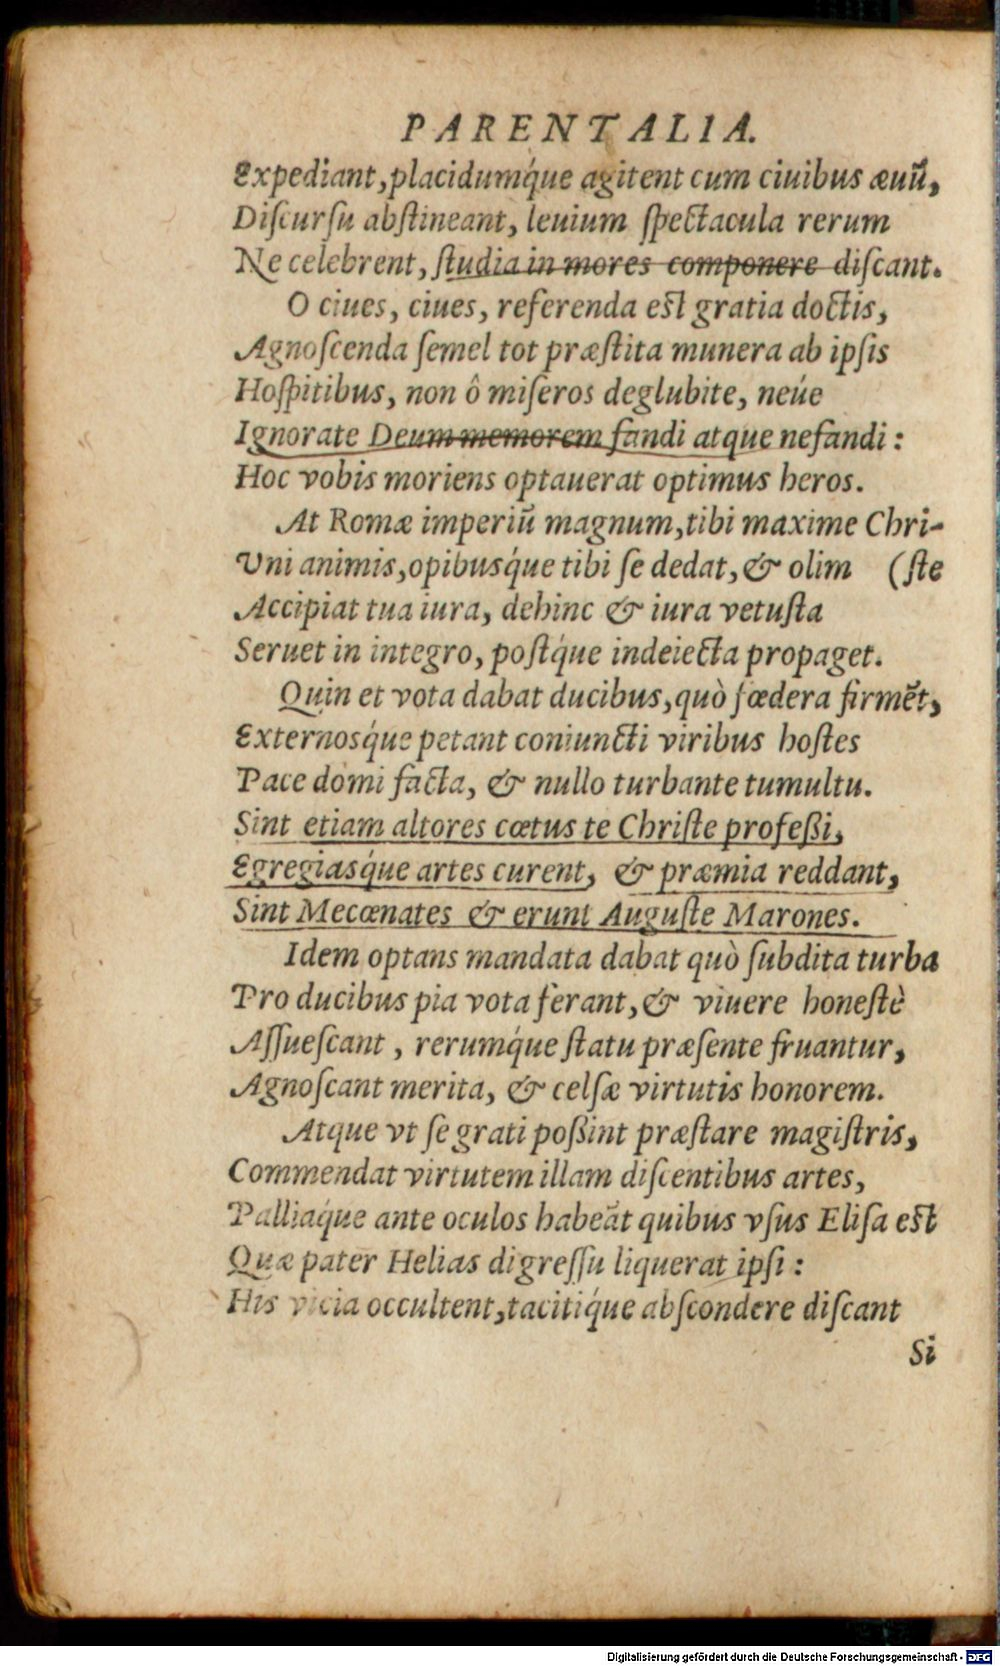 PARENTALIA.
Expediant, placidumq́ue agitent cum ciuibus æuū,
Diſcurſu abſtineant, leuium ſpectacula rerum
Ne celebrent, ſtudia in mores componere diſcant.
O ciues, ciues, referenda eſt gratia doctis,
Agnoſcenda ſemel tot præſtita munera ab ipſis
Hoſpitibus, non ô miſeros deglubite, neúe
Ignorate Deum memorem fandi atque nefandi:
Hoc vobis moriens optauerat optimus heros.
At Romæ imperiū magnum, tibi maxime Chri-
Vni animis, opibusq́ue tibi ſe dedat, & olim (ſte
Accipiat tua iura, dehinc & iura vetuſta
Seruet in integro, poſtq́ue indeiecta propaget.
Quin et vota dabat ducibus, quò fœdera firmēt,
Externosq́ue petant coniuncti viribus hoſtes
Pace domi facta, & nullo turbante tumultu.
Sint etiam altores cœtus te Chriſte profeßi,
Egregiasq́ue artes curent, & præmia reddant,
Sint Mecœnates & erunt Auguſte Marones.
Idem optans mandata dabat quò ſubdita turba
Pro ducibus pia vota ferant, & viuere honeſtè
Aſſueſcant, rerumq́ue ſtatu præſente fruantur,
Agnoſcant merita, & celſæ virtutis honorem.
Atque vt ſe grati poßint præſtare magiſtris,
Commendat virtutem illam diſcentibus artes,
Palliaq́ue ante oculos habeāt quibus vſus Eliſa eſt
Quæ pater Helias digreſſu liquerat ipſi:
His vicia occultent, tacitiq́ue abſcondere diſcant
Si
Digitalisierung gefördert durch die Deutsche Forschungsgemeinschaft - DFG